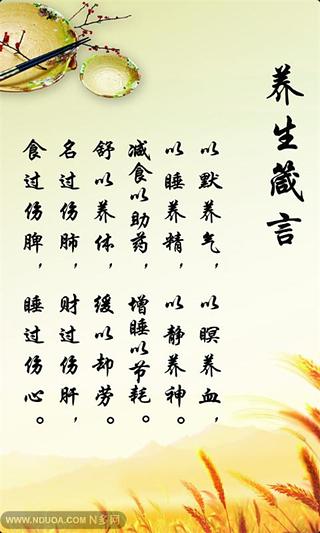 养生箴言
以默养气，以瞑养血，
以睡养精，以静养神。
减食以助药，增睡以节耗。
舒以养体，缓以却劳。
名过伤肺，财过伤肝，
食过伤脾，睡过伤心。
WWW.NDUOA.COM N多网